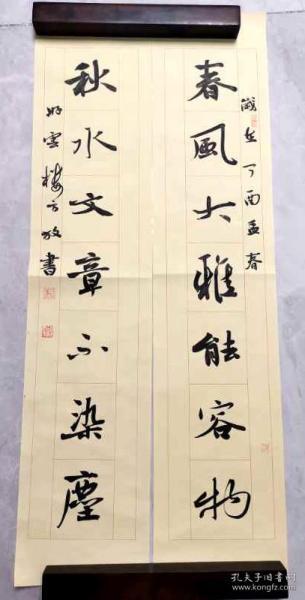 春風大雅能容物
歲在丁酉孟春
秋水文章不染塵
書
孔夫子旧书网